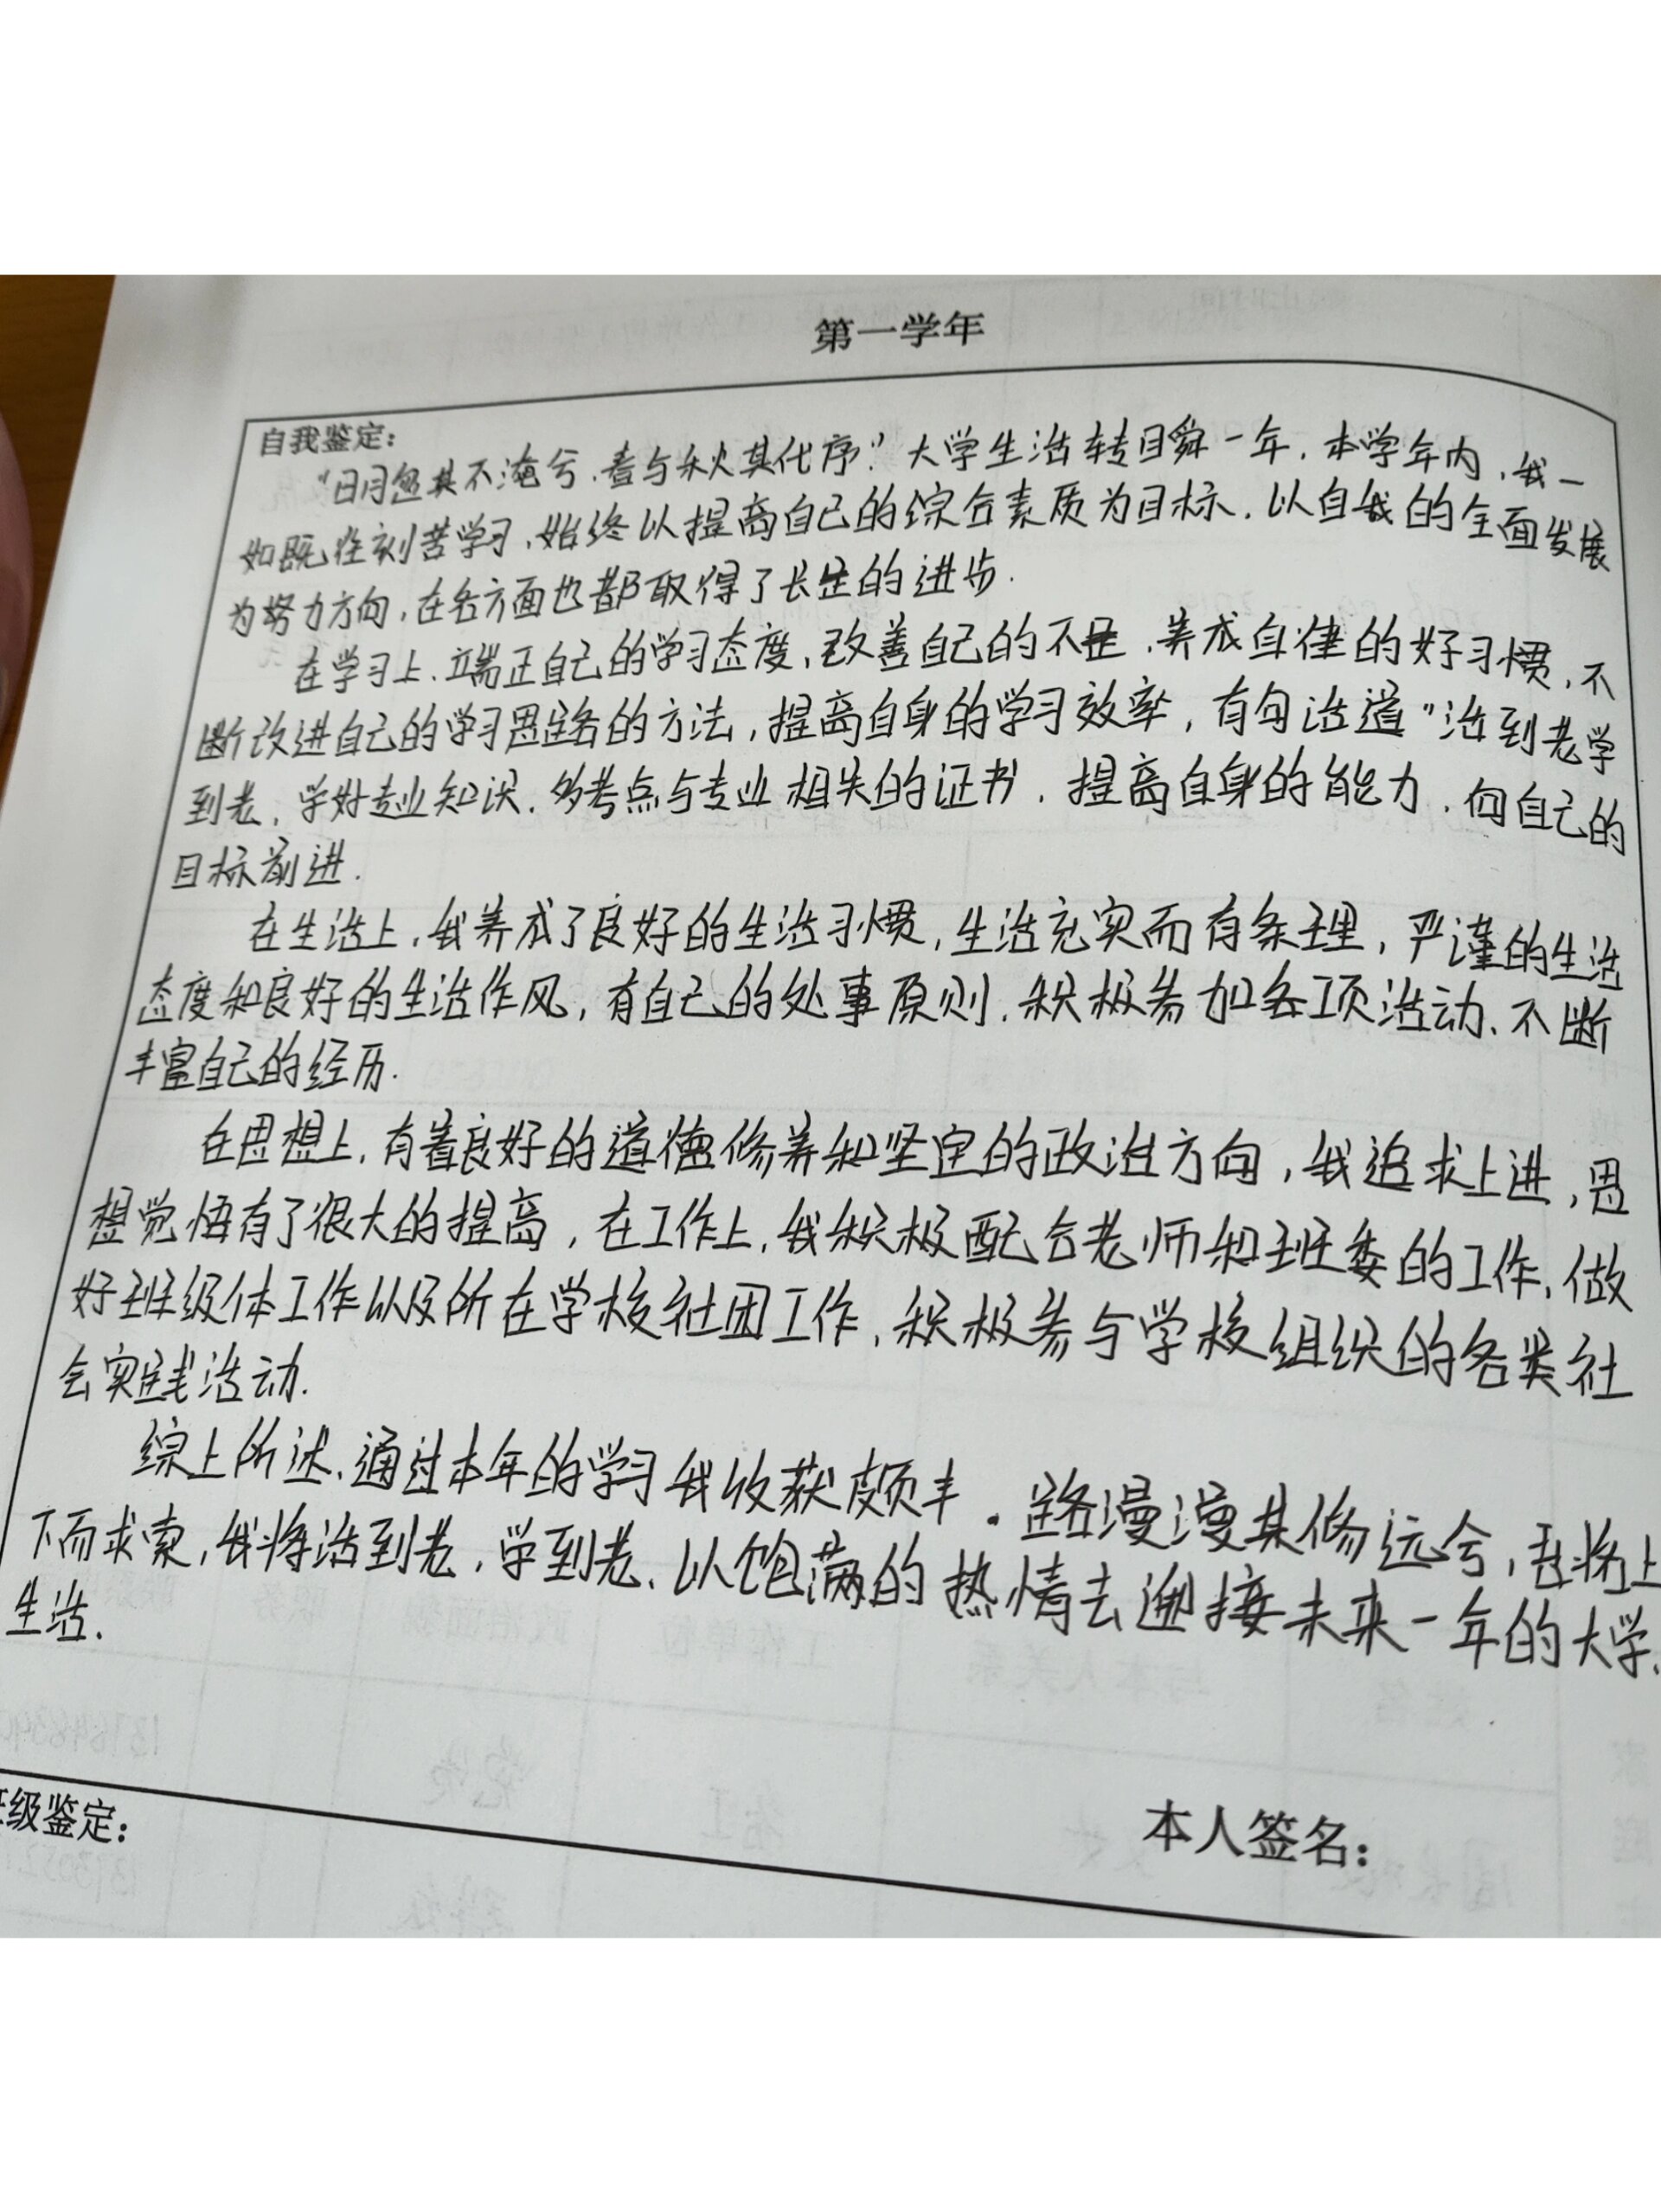 第一学年
自我鉴定:
"日月忽其不淹兮,春与秋其代序."大学生活转目舜一年,本学年内,我一
如既往刻苦学习,始终以提高自己的综合素质为目标,以自我的全面发展
为努力方向,在各方面也都取得了长足的进步.
在学习上,端正自己的学习态度,改善自己的不足,养成自律的好习惯,不
断改进自己的学习思路的方法,提高自身的学习效率,有句话道"活到老学
到老,学好专业知识,多考点与专业相关的证书,提高自身的能力,向自己的
目标前进.
在生活上,我养成了良好的生活习惯,生活充实而有条理,严谨的生活
态度和良好的生活作风,有自己的处事原则,积极参加各项活动、不断
丰富自己的经历.
在思想上,有着良好的道德修养和坚定的政治方向,我追求上进,思
想觉悟有了很大的提高,在工作上,我积极配合老师和班委的工作,做
好班级体工作以及所在学校社团工作,积极参与学校组织的各类社
会实践活动.
综上所述,通过本年的学习我收获颇丰.路漫漫其修远兮,吾将上
下而求索,我将活到老,学到老,以饱满的热情去迎接未来一年的大学
生活.
本人签名:
级鉴定: